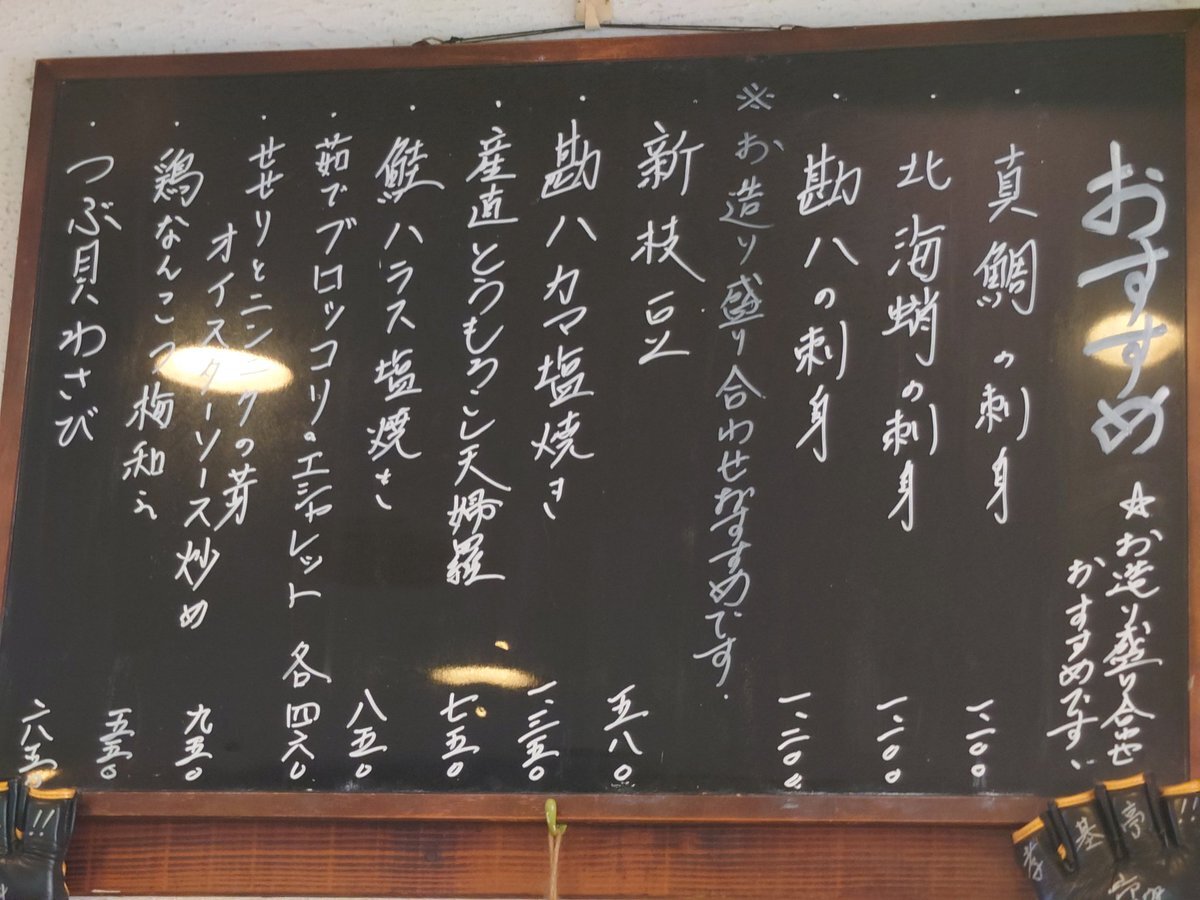 おすすめ
☆お造り盛り合せ
おすすめです!!
・真鯛の刺身 一.二〇〇
・北海蛸の刺身 一.一〇〇
・勘八の刺身 一.二〇〇
※お造り盛り合わせおすすめです.
新枝豆 五八〇
・勘八カマ塩焼き 一.三五〇
・産直とうもろこし天婦羅 七五〇
・鮭ハラス塩焼き 八五〇
・茹でブロッコリ。エシャレット 各四六〇
・せせりとニンニクの芽
オイスターソース炒め 九五〇
・鶏なんこつ梅和え 五五〇
・つぶ貝わさび 六五〇
!!
基
亭
!!